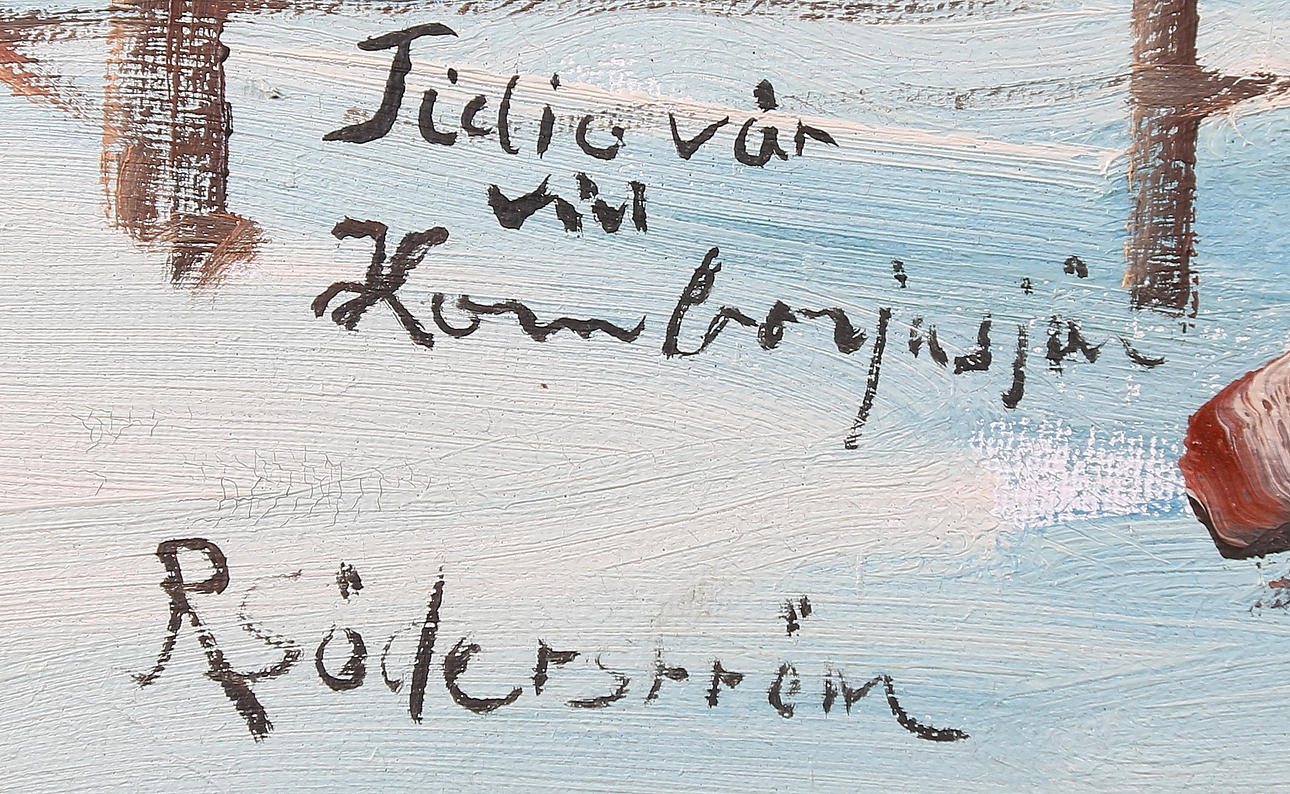 Tidig vår
vid
Hornborgasjön
R Söderström